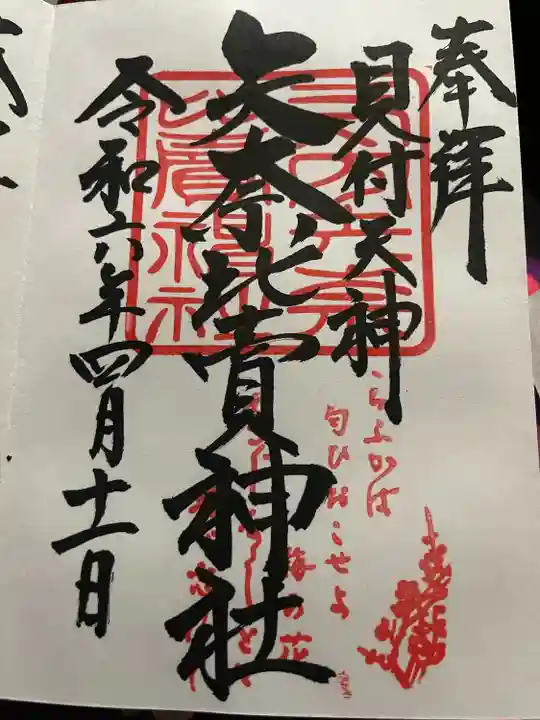 奉拝
見付天神
矢奈比賣神社
令和六年四月十一日
こちふかば
匂ひおこせよ
梅の花